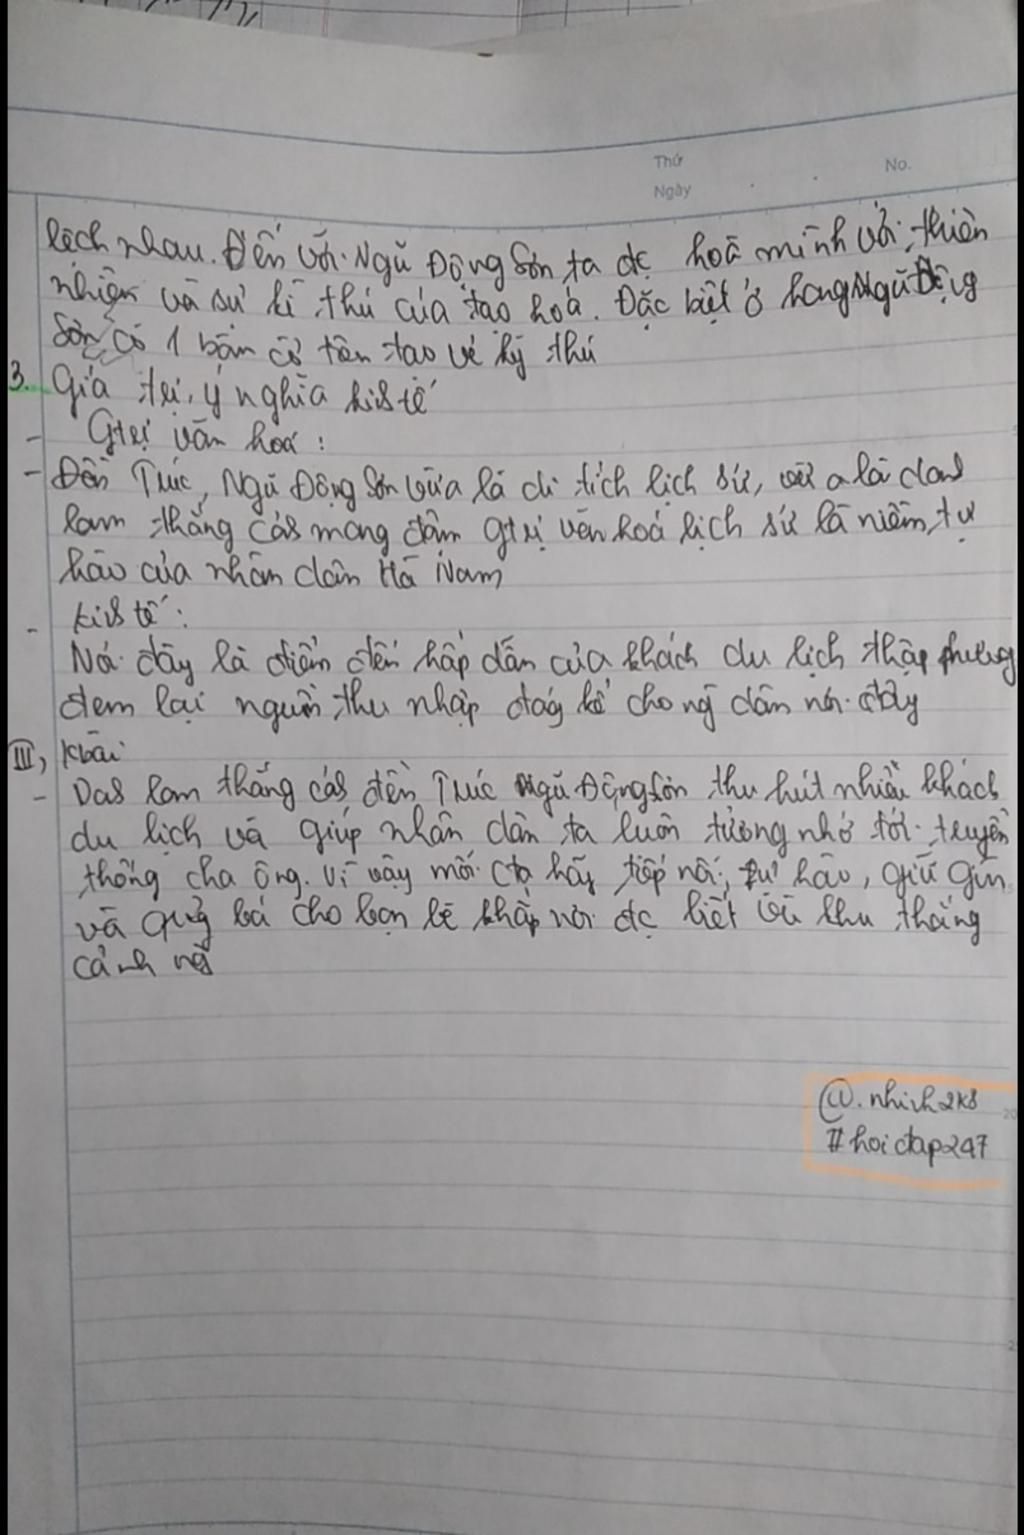 Thứ No.
Ngày
lệch nhau. Đến với Ngũ Động Sơn ta đc hoà mình với thiên
nhiên và sự kì thú của tạo hoá. Đặc biệt ở hang Ngũ Động
Sơn có 1 bàn cờ tiên tạo vẻ kỳ thú
3. Giá trị, ý nghĩa kinh tế
- Gtrị văn hoá :
- Đền Trúc, Ngũ Động Sơn vừa là di tích lịch sử, vừa là danh
lam thắng cảnh mang đậm gtrị văn hoá lịch sử là niềm tự
hào của nhân dân Hà Nam
- Kinh tế :
Nơi đây là điểm đến hấp dẫn của khách du lịch thập phương
đem lại nguồn thu nhập đáng kể cho ng dân nơi đây
III, Kbài
- Danh lam thắng cảnh đền Trúc Ngũ Động Sơn thu hút nhiều khách
du lịch và giúp nhân dân ta luôn tưởng nhớ tới truyền
thống cha ông. Vì vậy mỗi cta hãy tiếp nối, tự hào, giữ gìn
và quảng bá cho bạn bè khắp nơi đc biết về khu thắng
cảnh này
@.nhinh2k8
#hoidap247